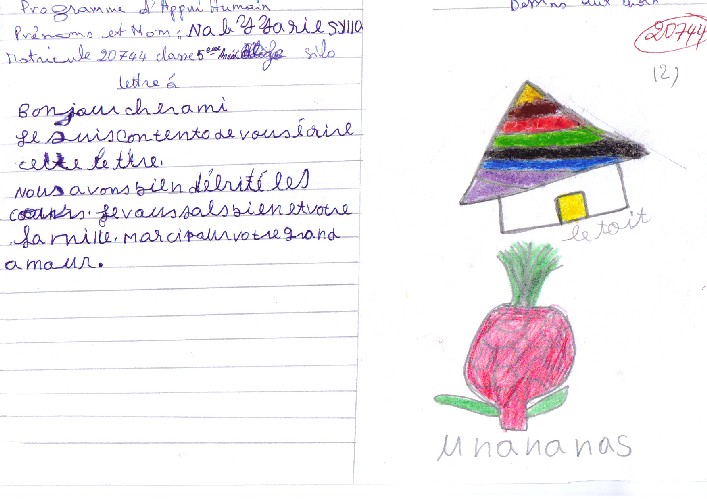 Programme d'Appui Humain
Prénoms et Nom: Naby Yarie sylla
Matricule 20744 classe 5ème Année silo
lettre à
Bonjour cherami
Je suis contento de vous écrire
cette lettre.
Nous avons bien débité les
cours. Je vous sals bien et votre
famille. Marci pour votre grand
amour.
Dessins aux choix
20744
(2)
le toit
Un ananas